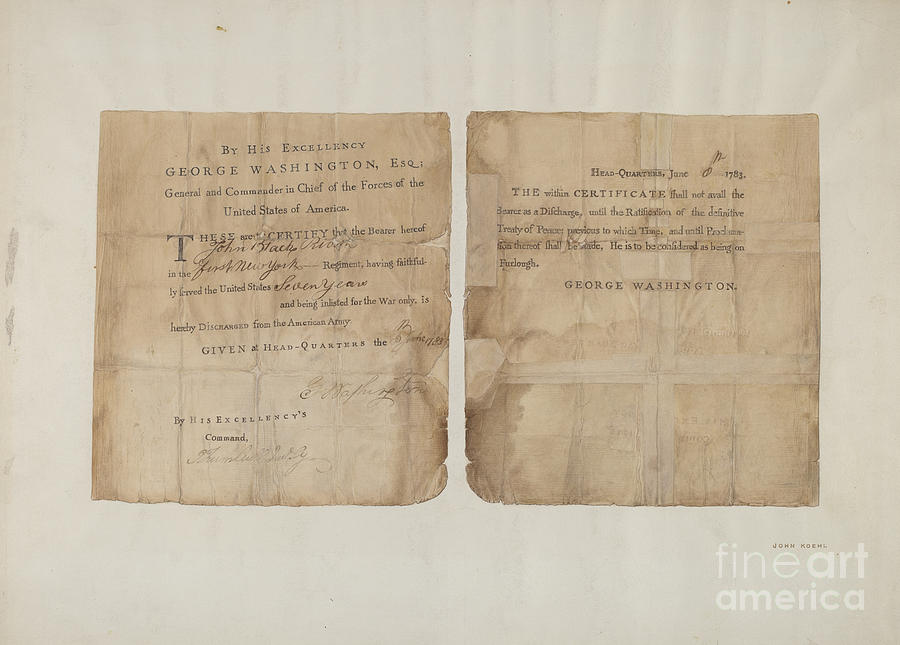 By His Excellency
GEORGE WASHINGTON, Esq;
General and Commander in Chief of the Forces of the
United States of America.
THESE are to CERTIFY that the Bearer hereof
John Black
in the first New York Regiment, having faithful-
ly served the United States Seven Years
and being inlisted for the War only, is
hereby Discharged from the American Army.
GIVEN at Head-Quarters the June 1783
G Washington
By HIS EXCELLENCY'S
Command,
Head-Quarters, June 8th 1783.
THE within CERTIFICATE shall not avail the
Bearer as a Discharge, until the Ratification of the definitive
Treaty of Peace; previous to which Time, and until Proclama-
tion thereof shall be made, He is to be considered as being on
Furlough.
GEORGE WASHINGTON.
JOHN KOEHL
fineart
america